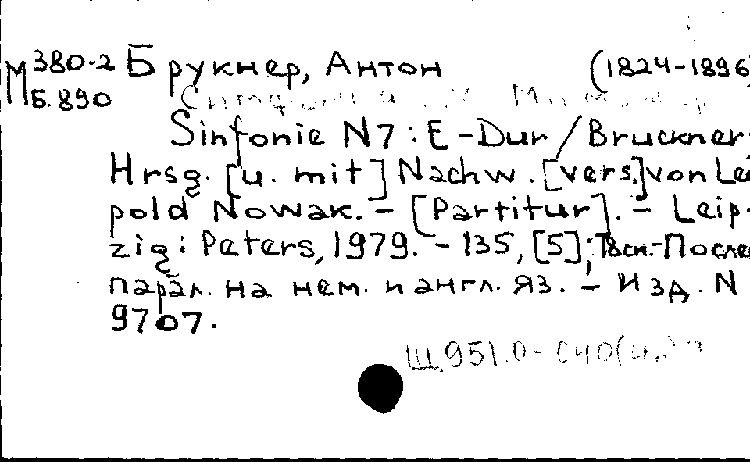 М 380-2 Брукнер, Антон (1824-1896
Б.890
Sinfonie N7 : E-Dur / Bruckner;
Hrsg. [u. mit] Nachw. [vers.] von Leo
pold Nowak. - [Partitur]. - Leip-
zig: Peters, 1979. - 135, [5];
парал. на нем. и англ. яз. - Изд. N
9707.
Щ951.0-